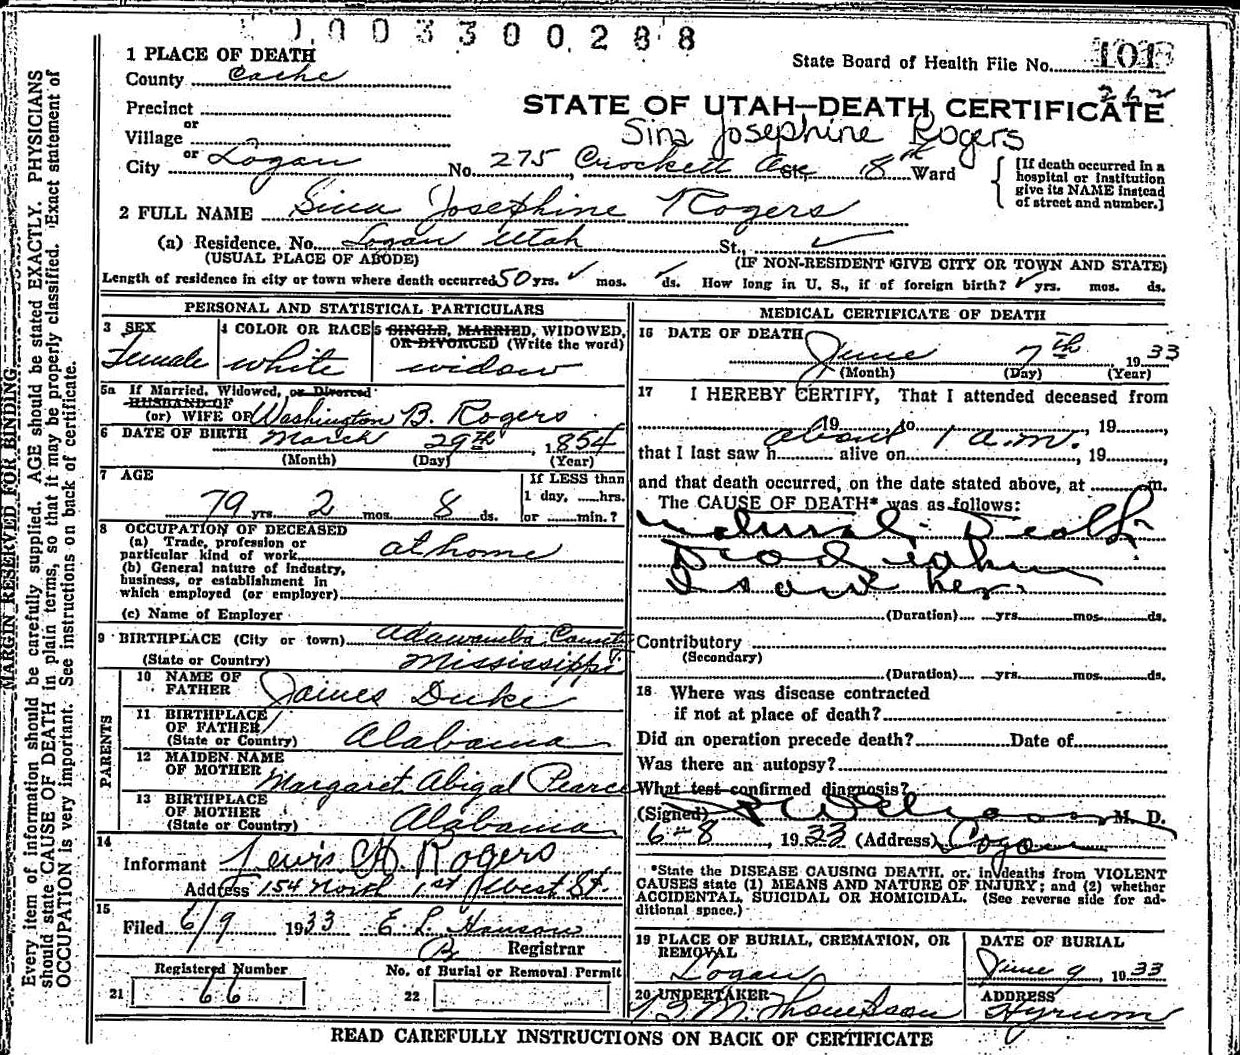 1003300288
1 PLACE OF DEATH
State Board of Health File No.
County Cache
262
Precinct
STATE OF UTAH—DEATH CERTIFICATE
or
Village
Sina Josephine Rogers
or
City Logan No. 275, Crockett Ave St., 8th Ward
[If death occurred in a hospital or institution give its NAME instead of street and number.]
2 FULL NAME Sina Josephine Rogers
(a) Residence. No. Logan Utah St., ✓
(USUAL PLACE OF ABODE) (IF NON-RESIDENT GIVE CITY OR TOWN AND STATE)
Length of residence in city or town where death occurred 50 yrs. ✓ mos. ✓ ds. How long in U. S., if of foreign birth? ✓ yrs. mos. ds.
PERSONAL AND STATISTICAL PARTICULARS
3 SEX
Female
4 COLOR OR RACE
white
5 SINGLE, MARRIED, WIDOWED,
OR DIVORCED (Write the word)
widow
5a If Married, Widowed, or Divorced
HUSBAND OF
(or) WIFE OF Washington B. Rogers
6 DATE OF BIRTH March 29th, 1854
(Month) (Day) (Year)
7 AGE
79 yrs. 2 mos. 8 ds.
If LESS than
1 day, hrs.
or min.?
8 OCCUPATION OF DECEASED
(a) Trade, profession or
particular kind of work at home
(b) General nature of industry,
business, or establishment in
which employed (or employer)
(c) Name of Employer
9 BIRTHPLACE (City or town) Adawamba County
(State or Country) Mississippi
PARENTS
10 NAME OF
FATHER James Duke
11 BIRTHPLACE
OF FATHER
(State or Country) Alabama
12 MAIDEN NAME
OF MOTHER
Margaret Abigal Pearce
13 BIRTHPLACE
OF MOTHER
(State or Country) Alabama
14
Informant Lewis H. Rogers
Address 154 North 1st West St.
15
Filed 6/9 1933 E. L. Hanson
Registrar
Registered Number
21 66
No. of Burial or Removal Permit
22
MEDICAL CERTIFICATE OF DEATH
16 DATE OF DEATH
June 7th 1933
(Month) (Day) (Year)
17 I HEREBY CERTIFY, That I attended deceased from
, 19 to , 19 ,
about 1 a.m.
that I last saw h alive on , 19 ,
and that death occurred, on the date stated above, at m.
The CAUSE OF DEATH* was as follows:
Natural Death
Dead when
I saw her
(Duration) yrs. mos. ds.
Contributory
(Secondary)
(Duration) yrs. mos. ds.
18 Where was disease contracted
if not at place of death?
Did an operation precede death? Date of
Was there an autopsy?
What test confirmed diagnosis?
(Signed) M. D.
6-8, 1933 (Address) Logan
*State the DISEASE CAUSING DEATH, or, in deaths from VIOLENT
CAUSES state (1) MEANS AND NATURE OF INJURY; and (2) whether
ACCIDENTAL, SUICIDAL OR HOMICIDAL. (See reverse side for ad-
ditional space.)
19 PLACE OF BURIAL, CREMATION, OR
REMOVAL
Logan
DATE OF BURIAL
June 9, 1933
20 UNDERTAKER
M. Thompson
ADDRESS
Hyrum
READ CAREFULLY INSTRUCTIONS ON BACK OF CERTIFICATE
MARGIN RESERVED FOR BINDING
Every item of information should be carefully supplied. AGE should be stated EXACTLY. PHYSICIANS
should state CAUSE OF DEATH in plain terms, so that it may be properly classified. Exact statement of
OCCUPATION is very important. See instructions on back of certificate.